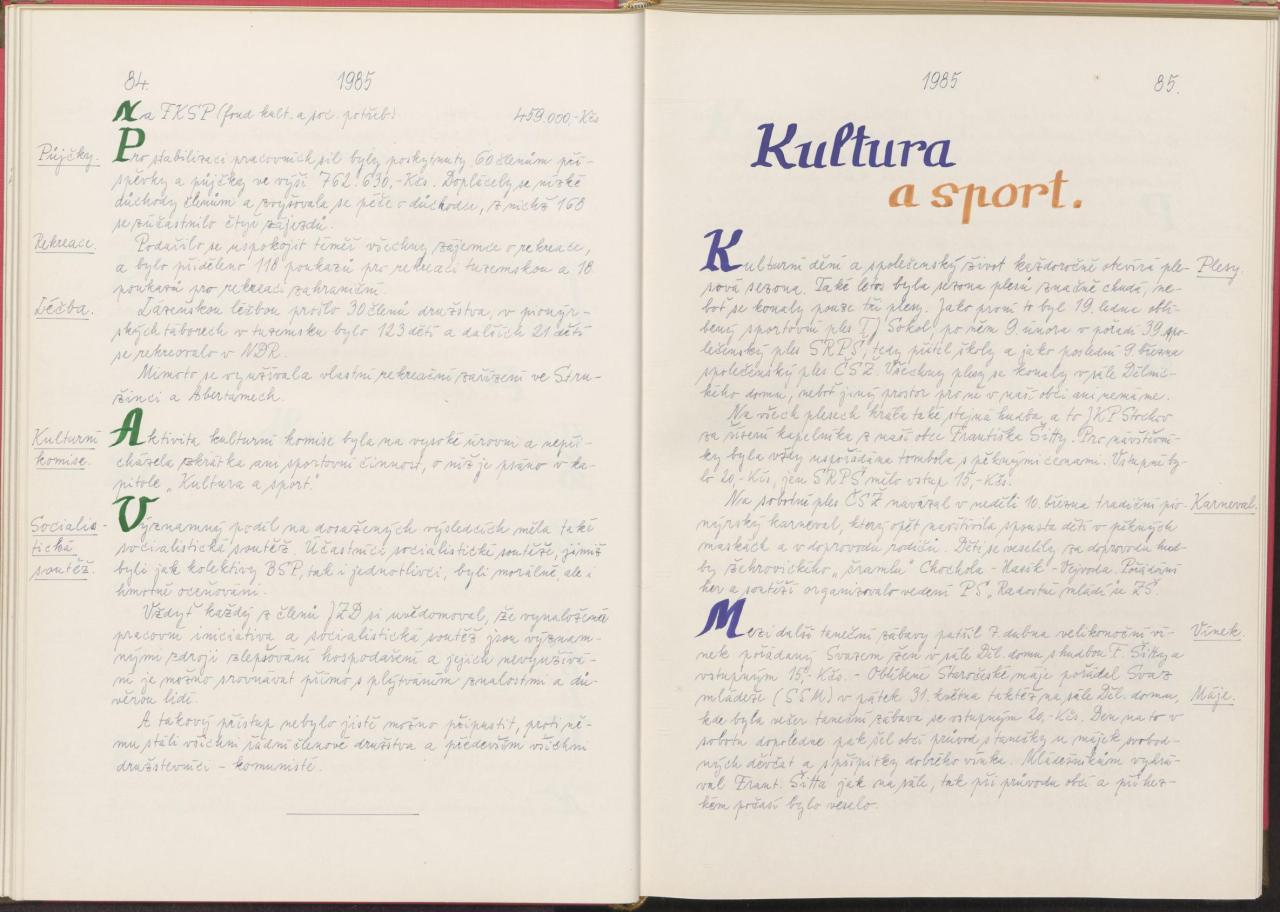 84. 1985
Na FKSP (fond kult. a soc. potřeb) 459.000,-Kčs
Půjčky. Pro stabilizaci pracovních sil byly poskytnuty 60 členům pří-
spěvky a půjčky ve výši 762.630,-Kčs. Doplácely se nízké
důchody členům a zvyšovala se péče o důchodce, z nichž 168
se zúčastnilo čtyř zájezdů.
Rekreace. Podařilo se uspokojit téměř všechny zájemce o rekreace,
a bylo přiděleno 118 poukazů pro rekreaci tuzemskou a 18
poukazů pro rekreaci zahraniční.
Léčba. Lázeňskou léčbou prošlo 30 členů družstva, v pionýr-
ských táborech v tuzemsku bylo 123 dětí a dalších 21 dětí
se rekreovalo v NDR.
Mimoto se využívala vlastní rekreační zařízení ve Stru-
žinci a Abertamech.
Kulturní Aktivita kulturní komise byla na vysoké úrovni a nepři-
komise. cházela zkrátka ani sportovní činnost, o níž je psáno v ka-
pitole „Kultura a sport."
Socialis- Významný podíl na dosažených výsledcích měla také
tická socialistická soutěž. Účastníci socialistické soutěže, jimiž
soutěž. byli jak kolektivy BSP, tak i jednotlivci, byli morálně, ale i
hmotně oceňováni.
Vždyť každý z členů JZD si uvědomoval, že vynaložená
pracovní iniciativa a socialistická soutěž jsou význam-
nými zdroji zlepšování hospodaření a jejich nevyužívá-
ní je možno srovnávat přímo s plýtváním znalostmi a dů-
věrou lidí.
A takový přístup nebylo jistě možno připustit, proti ně-
mu stáli všichni řádní členové družstva a především všichni
družstevníci - komunisté.
1985 85.
Kultura
a sport.
Kulturní dění a společenský život každoročně otevírá ple- Plesy.
sová sezona. Také letos byla sezona plesů značně chudá, ne-
boť se konaly pouze tři plesy. Jako první to byl 19. ledna oblí-
bený sportovní ples TJ Sokol, po něm 9. února v pořadí 39. spo-
lečenský ples SRPŠ, tedy přátel školy a jako poslední 9. března
společenský ples ČSŽ. Všechny plesy se konaly v sále Dělnic-
kého domu, neboť jiný prostor pro ně v naší obci ani nemáme.
Na všech plesech hrála také stejná hudba, a to JKP Stochov
za řízení kapelníka z naší obce Františka Šitty. Pro návštěvní-
ky byla vždy uspořádána tombola s pěknými cenami. Vstupné by-
lo 20,-Kčs, jen SRPŠ mělo vstup 15,-Kčs.
Na sobotní ples ČSŽ navázal v neděli 10. března tradiční pio- Karneval.
nýrský karneval, který opět navštívila spousta dětí v pěkných
maskách a v doprovodu rodičů. Děti se veselily za doprovodu hud-
by žehrovického „šramlu" Chochola - Hasík - Vejvoda. Pořádání
her a soutěží organizovalo vedení PS „Radostné mládí" se ZŠ.
Mezi další taneční zábavy patřil 7. dubna velikonoční ví- Vínek.
nek pořádaný Svazem žen v sále Děl. domu s hudbou F. Šitty a
vstupným 15,-Kčs. - Oblíbené Staročeské máje pořádal Svaz
mládeže (SSM) v pátek 31. května taktéž na sále Děl. domu, Máje.
kde byla večer taneční zábava se vstupným 20,-Kčs. Den na to v
sobotu dopoledne pak šel obcí průvod s tanečky u májek svobod-
ných děvčat a s přípitky dobrého vínka. Mládežníkům vyhrá-
val Frant. Šitta jak na sále, tak při průvodu obcí a při hez-
kém počasí bylo veselo.